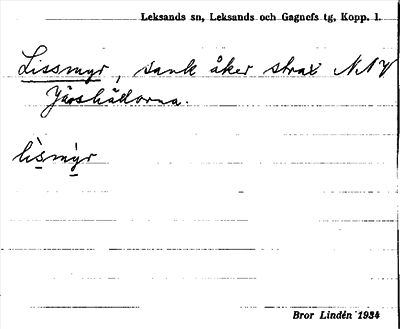 Leksands sn, Leksands och Gagnefs tg, Kopp. l.
Lissmyr, sank åker strax NNV
lìsmỳr
Bror Lindén 1934